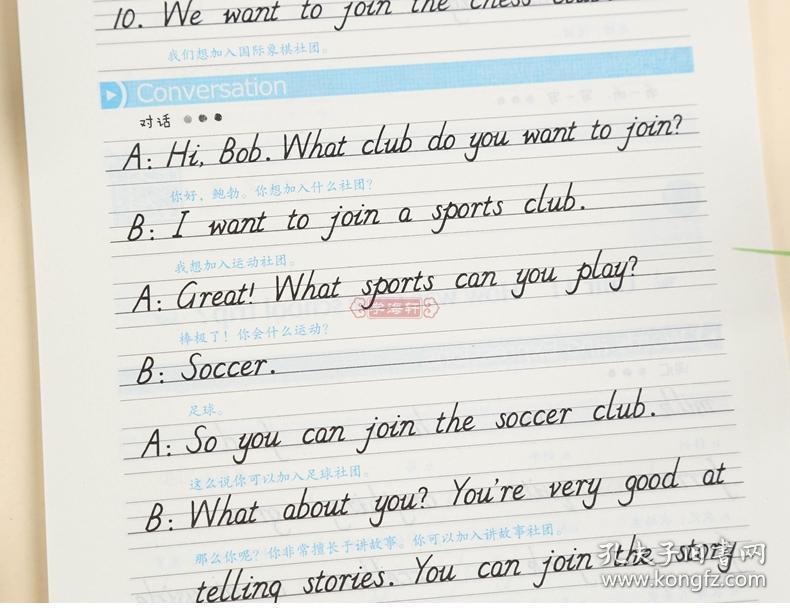 10. We want to join the chess club.
我们想加入国际象棋社团。
Conversation
对话
A: Hi, Bob. What club do you want to join?
你好，鲍勃。你想加入什么社团？
B: I want to join a sports club.
我想加入运动社团。
A: Great! What sports can you play?
学海轩
棒极了！你会什么运动？
B: Soccer.
足球。
A: So you can join the soccer club.
这么说你可以加入足球社团。
B: What about you? You're very good at
那么你呢？你非常擅长于讲故事。你可以加入讲故事社团。
telling stories. You can join the story
孔夫子旧书网
www.kongfz.com